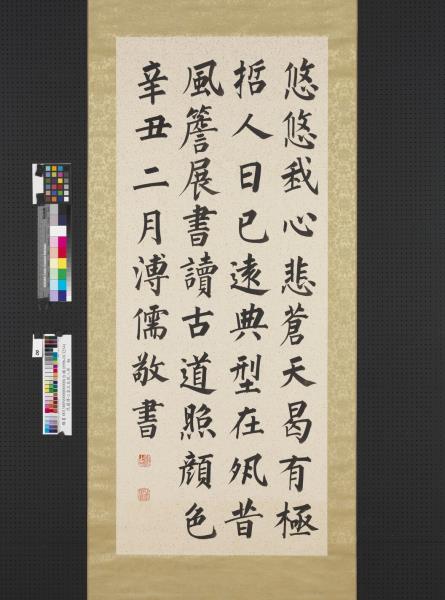 悠悠我心悲蒼天曷有極
哲人日已遠典型在夙昔
風簷展書讀古道照顔色
辛丑二月溥儒敬書